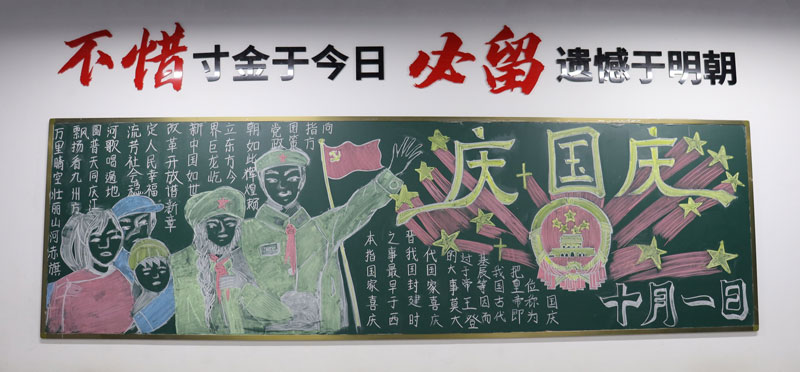 不惜寸金于今日 必留遗憾于明朝
万里晴空壮丽山河赤旗
飘扬看九州方
圆普天同庆江
河歌唱遍地
流芳社会稳
定人民幸福
改革开放谱新章
新中国如世
界巨龙屹
立东方今
朝如此辉煌
党政
国策
指方
向
庆国庆
本指国家喜庆
之事最早于西
晋我国封建时
代国家喜庆
的大事莫大
过于帝王登
基辰等因而
我国古代
把皇帝即
位称为
国庆
十月一日